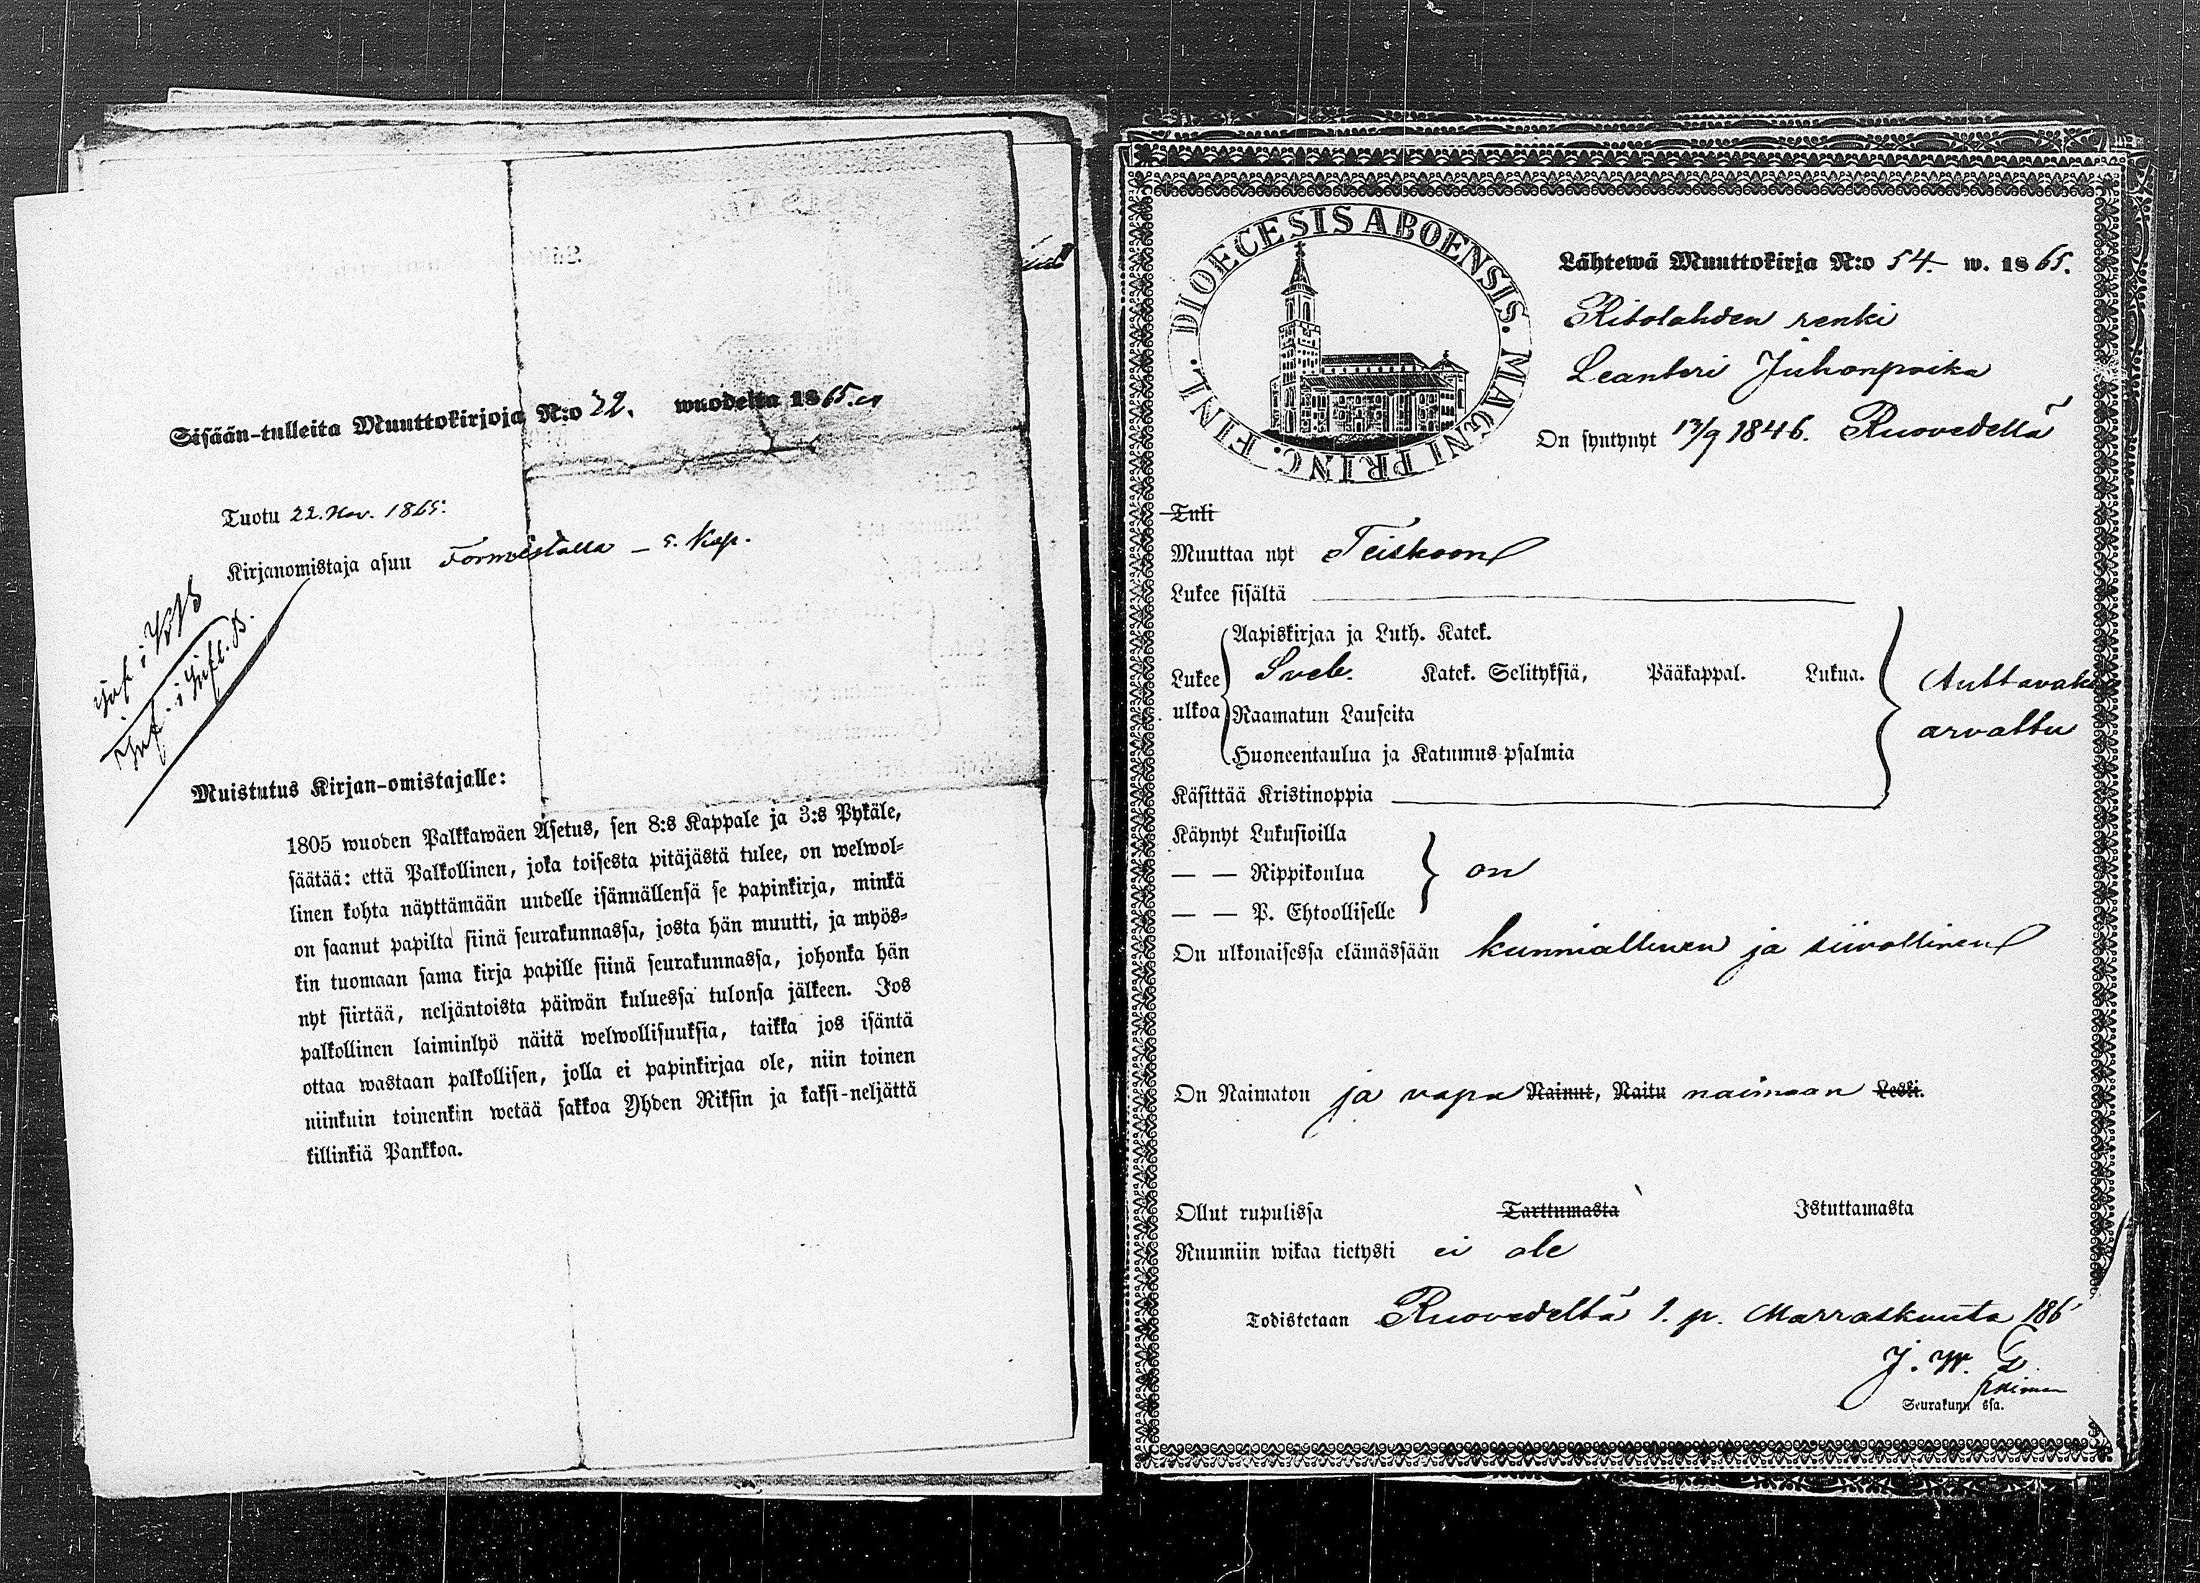 Sisään-tulleita Muuttokirjoja N:o 22. wuodelta 1865.
Tuotu 22. Nov. 1865:
Kirjanomistaja asuu Tormistalla – s. Kap.
Muistutus Kirjan-omistajalle:
1805 wuoden Palkkawäen Asetus, sen 8:s Kappale ja 3:s Pykäle,
säätää: että Palkollinen, joka toisesta pitäjästä tulee, on welwol-
linen kohta näyttämään uudelle isännällensä se papinkirja, minkä
on saanut papilta siinä seurakunnassa, josta hän muutti, ja myös-
kin tuomaan sama kirja papille siinä seurakunnassa, johonka hän
nyt siirtää, neljäntoista päiwän kuluessa tulonsa jälkeen. Jos
palkollinen laiminlyö näitä welwollisuuksia, taikka jos isäntä
ottaa wastaan palkollisen, jolla ei papinkirjaa ole, niin toinen
niinkuin toinenkin wetää sakkoa Yhden Riksin ja kaksi-neljättä
killinkiä Pankkoa.
DIOECESIS ABOENSIS. MAGNI PRINC. FINL.
Lähtewä Muuttokirja N:o 54. w. 1865.
Ritolahden renki
Leanteri Juhonpoika
On syntynyt 13/9 1846. Ruovedellä
Tuli
Muuttaa nyt Teiskoon
Lukee sisältä
Aapiskirjaa ja Luth. Katek.
Lukee Sveb. Katek. Selityksiä, Pääkappal. Lukua. Auttavaksi
ulkoa Raamatun Lauseita arvattu
Huoneentaulua ja Katumus psalmia
Käsittää Kristinoppia
Käynyt Lukusioilla
— — Rippikoulua on
— — P. Ehtoolliselle
On ulkonaisessa elämässään kunniallinen ja siivollinen
On Naimaton ja vapa Nainut, Naitu naimaan Leski.
Ollut rupulissa Tarttumasta Istuttamasta
Ruumiin wikaa tietysti ei ole
Todistetaan Ruovedeltä 1. p. Marraskuuta 186
J. W.
Seurakunn ssa.